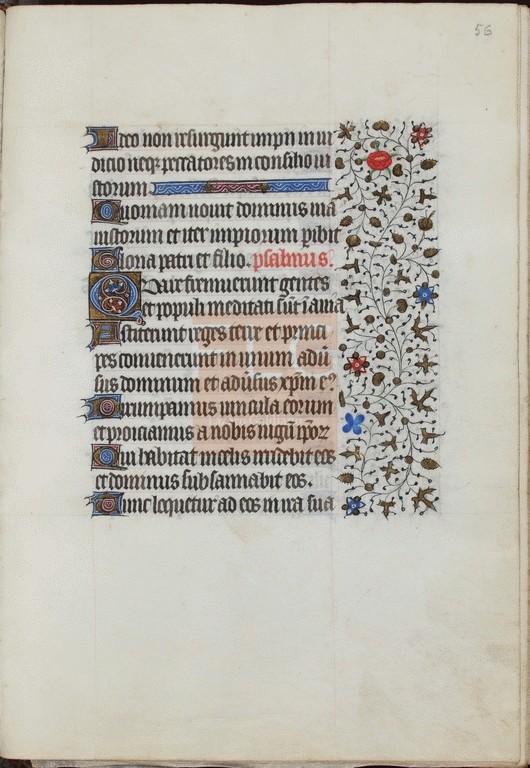 56
Ideo non resurgunt impii in iu
dicio neqz peccatores in consilio iu
storum
Quoniam nouit dominus uia
iustorum et iter impiorum peribit
Gloria patri et filio. psalmus.
Quare fremuerunt gentes
et populi meditati sūt īania
Astiterunt reges terre et princi
pes conuenerunt in unum adū
sus dominum et adūsus xp̄m eꝰ
Dirumpamus uincula eorum
et proiciamus a nobis iugū ip̄oꝝ
Qui habitat in celis irridebit eos
et dominus subsannabit eos.
Tunc loquetur ad eos in ira sua